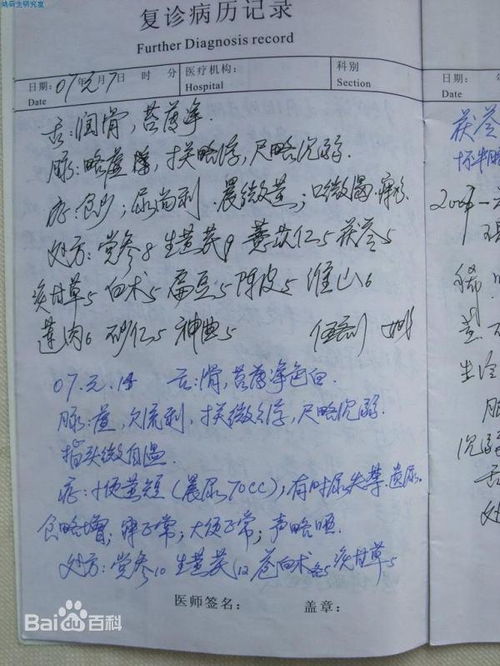 复诊病历记录
Further Diagnosis record
日期: 07 元月 7 日 时 分 医疗机构: 科别
Date Hospital Section
舌:润滑,苔薄净.
脉:略虚, 寸关略浮,尺略沉弱.
症:食少;尿尚利.晨微黄;口微
处方:党参8 生黄芪9 薏苡仁5 茯苓5
炙甘草5 白术5 扁豆5 陈皮5 淮山6
莲肉6 砂仁5 神曲5 伍剂
07.元.14 舌:滑,苔薄净色白.
脉: 欠流利,寸关微浮,尺略沉弱.
指头微自温
症:小便黄短(晨尿70cc),有时尿失禁.遗尿.
食略增;寐正常;大便正常;声略哑.
处方:党参10 生黄芪12 苍白术各5 炙甘草5
医师签名: 盖章:
茯苓
怀牛膝
2007.
生冷
脉
沉弱
处
Bai百科